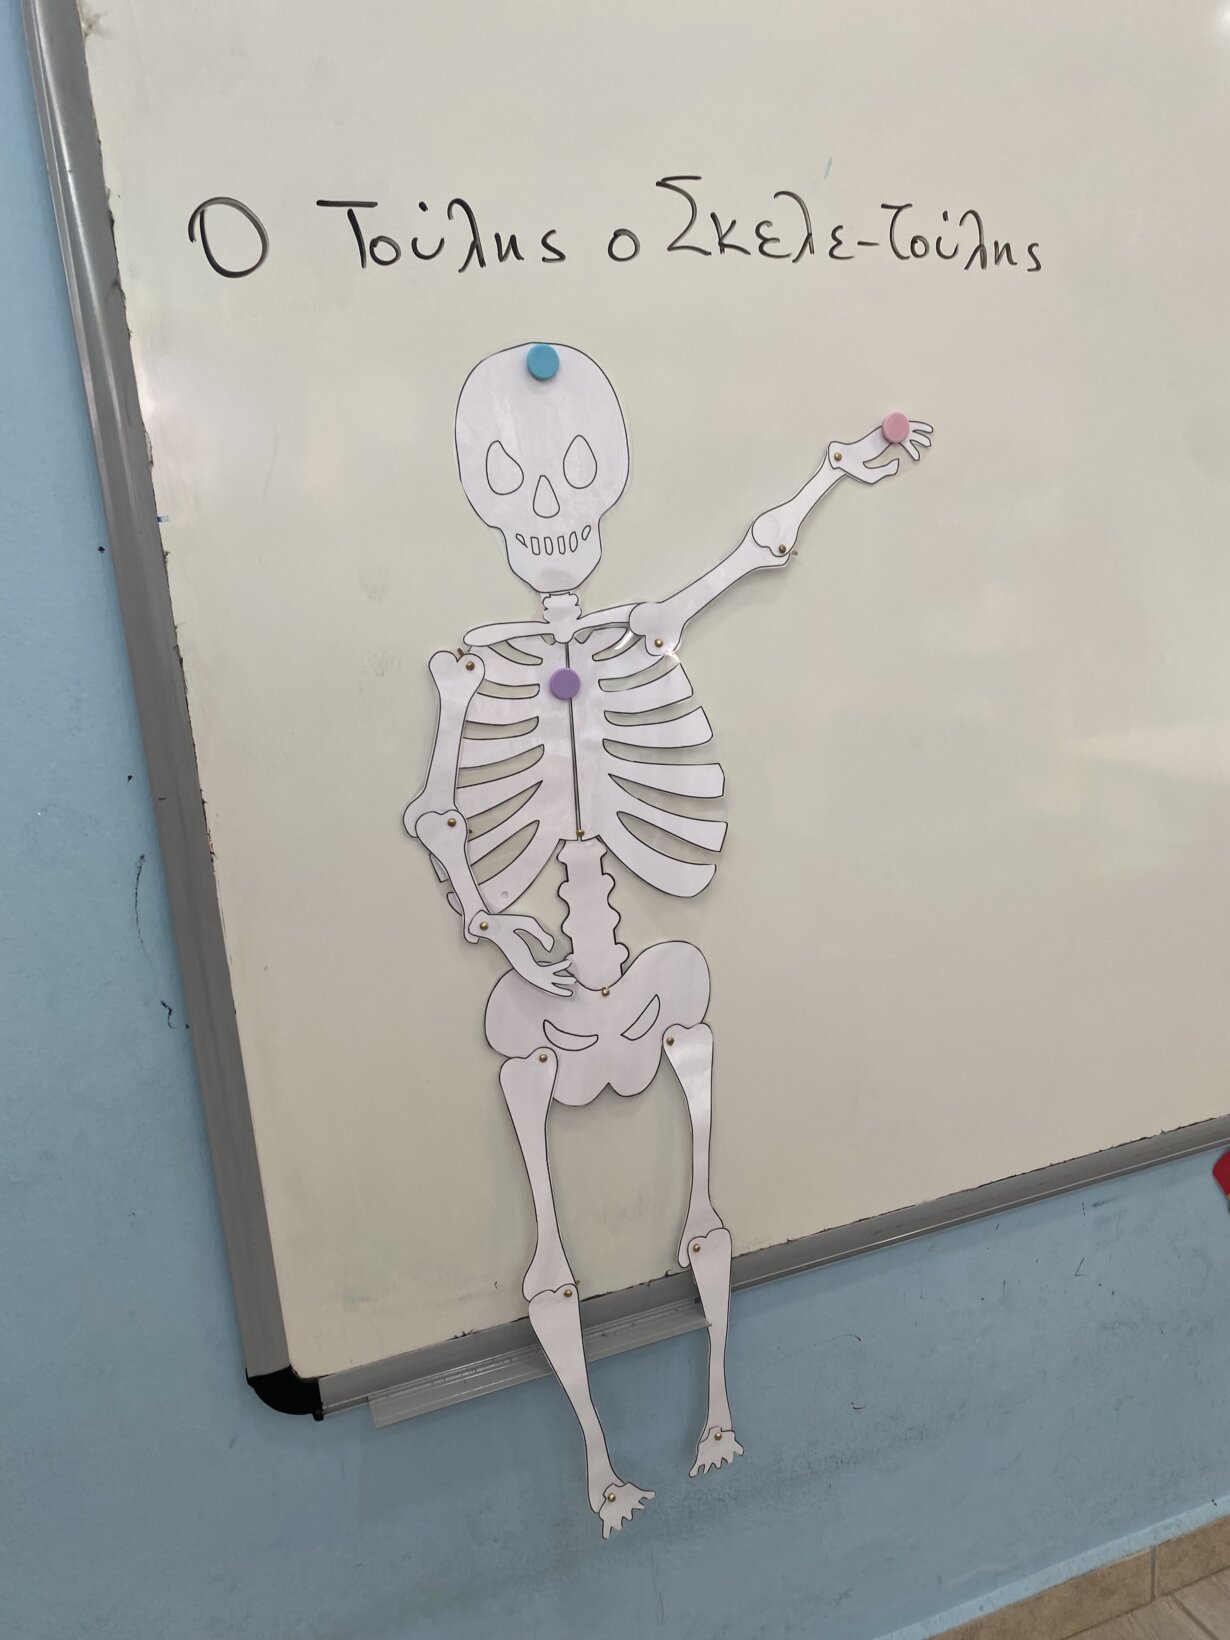 Ο Τούλης ο Σκελε-τούλης